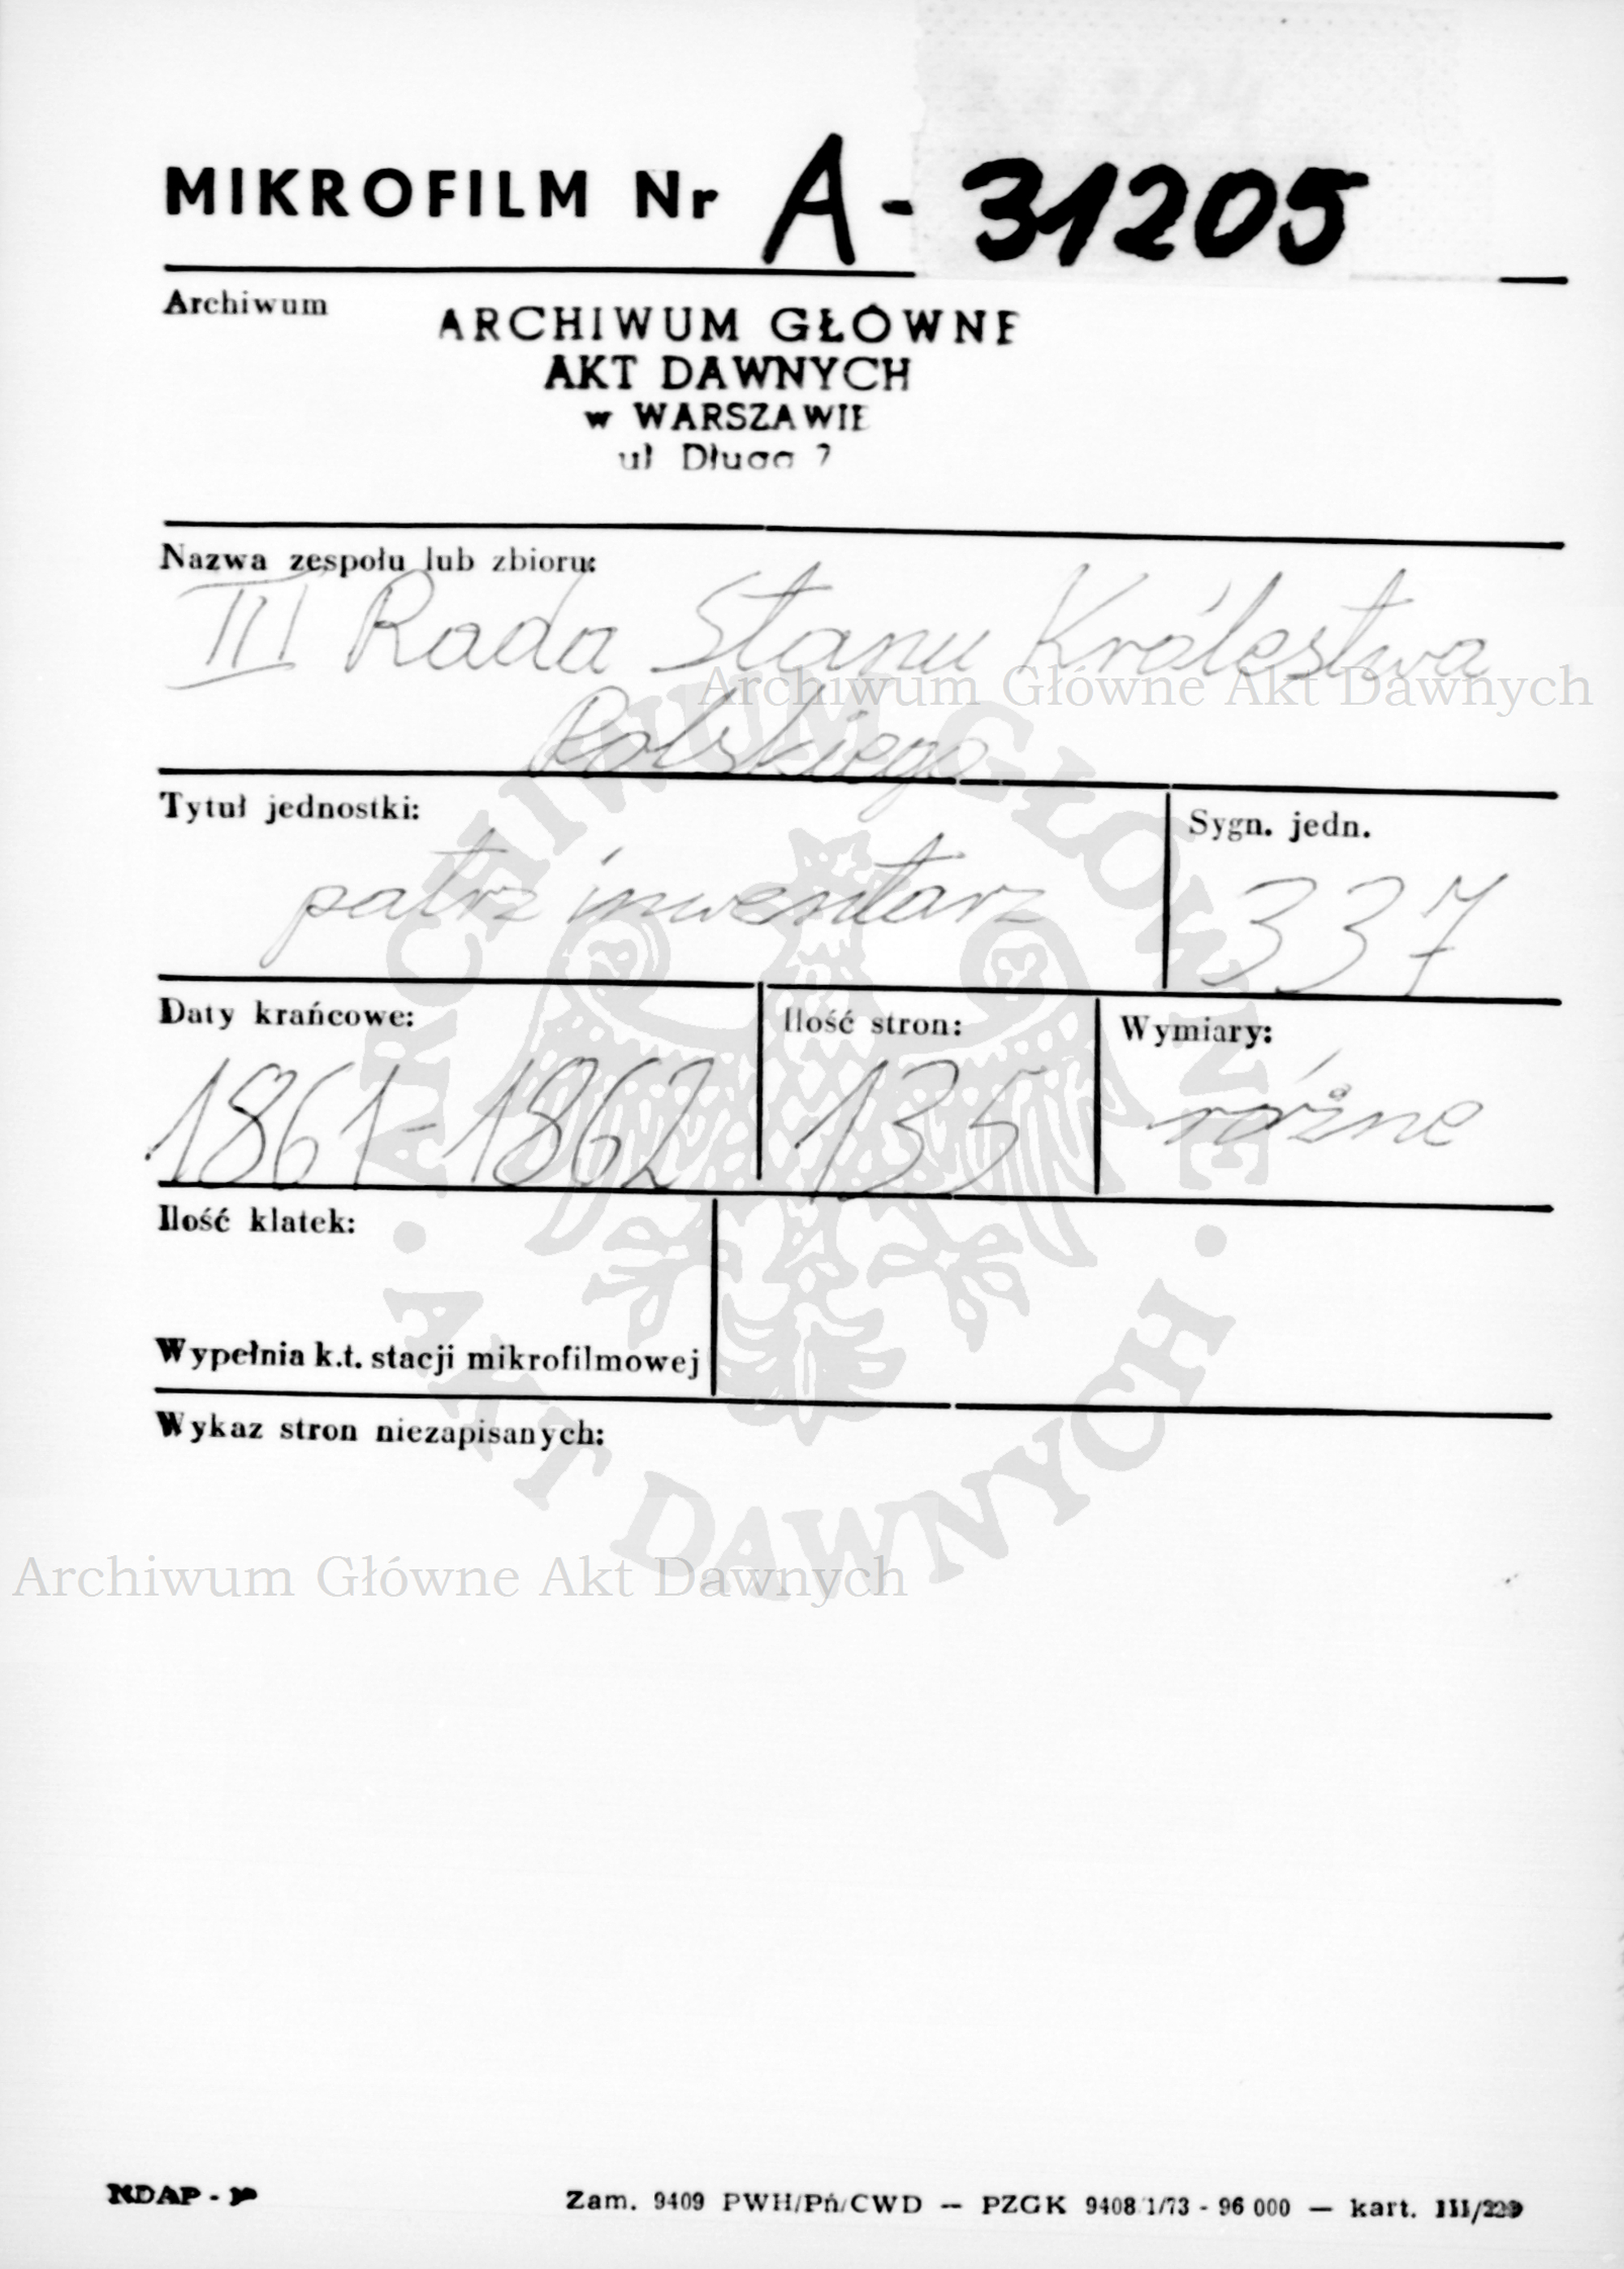 MIKROFILM Nr A-31205
Archiwum
ARCHIWUM GŁÓWNE
AKT DAWNYCH
w WARSZAWIE
ul Długa 7
Nazwa zespołu lub zbioru:
III Rada Stanu Królestwa
Polskiego
Archiwum Główne Akt Dawnych
Tytuł jednostki:
patrz inwentarz
Sygn. jedn.
337
Daty krańcowe:
1861-1862
Ilość stron:
135
Wymiary:
różne
Ilość klatek:
Wypełnia k.t. stacji mikrofilmowej
Wykaz stron niezapisanych:
ARCHIWUM GŁÓWNE · AKT DAWNYCH ·
Archiwum Główne Akt Dawnych
NDAP -
Zam. 9409 PWH/Pń/CWD — PZGK 9408 1/73 - 96 000 — kart. III/